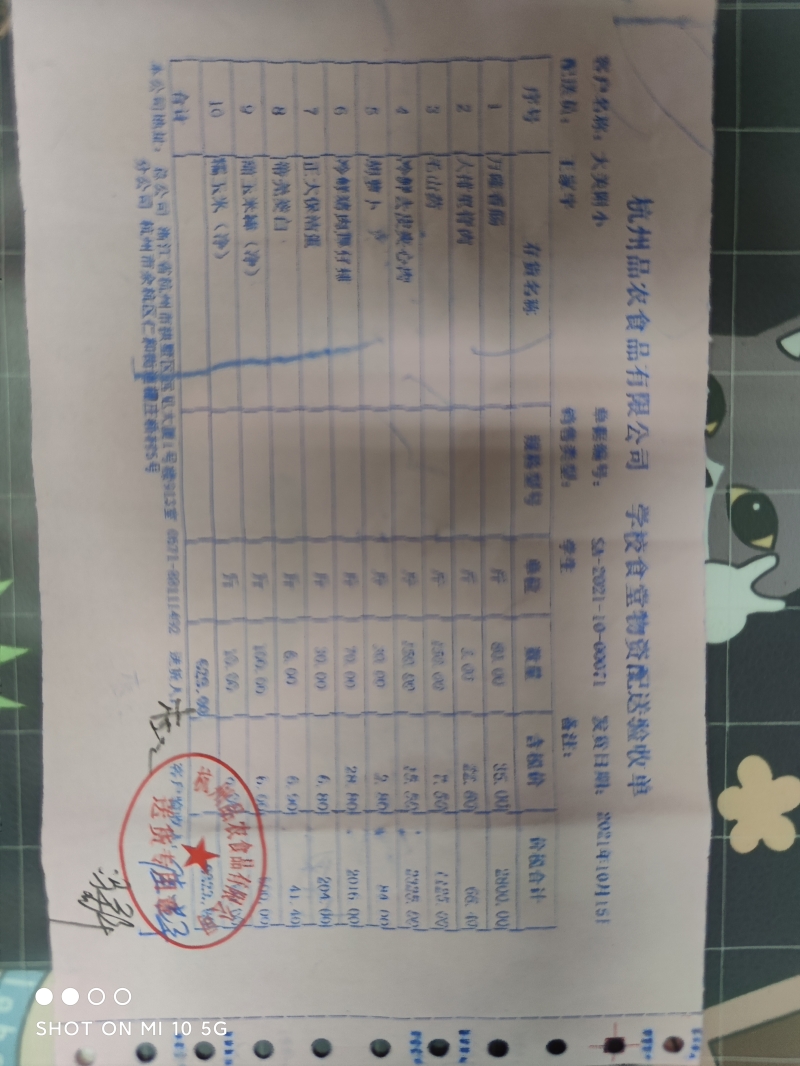 杭州品农食品有限公司 学校食堂物资配送验收单
客户名称: 大关附小 单据编号: SA-2021-10-00071 发货日期: 2021年10月15日
配送员: 王家宇 销售类型: 学生 备注:
序号 存货名称 规格型号 单位 数量 含税价 价税合计
1 香肠 斤 80.00 35.00 2800.00
2 斤 3.00 22.80 68.40
3 毛山药 斤 150.00 7.50 1125.00
4 冷鲜去皮夹心肉 斤 150.00 15.50 2325.00
5 胡萝卜 斤 30.00 2.80 84.00
6 冷鲜猪肉厚仔排 斤 70.00 28.80 2016.00
7 正大保洁蛋 斤 30.00 6.80 204.00
8 带壳茭白 斤 6.00 6.90 41.40
9 甜玉米棒(净) 斤 100.00 6.00
10 糯玉米(净) 斤 10.00
合计 629.00
本公司地址: 总公司 浙江省杭州市拱墅区 大厦1号楼913室 0571-88111492 送货人
分公司 杭州市余杭区仁和街道
农食品有限公司
送货专用章
SHOT ON MI 10 5G